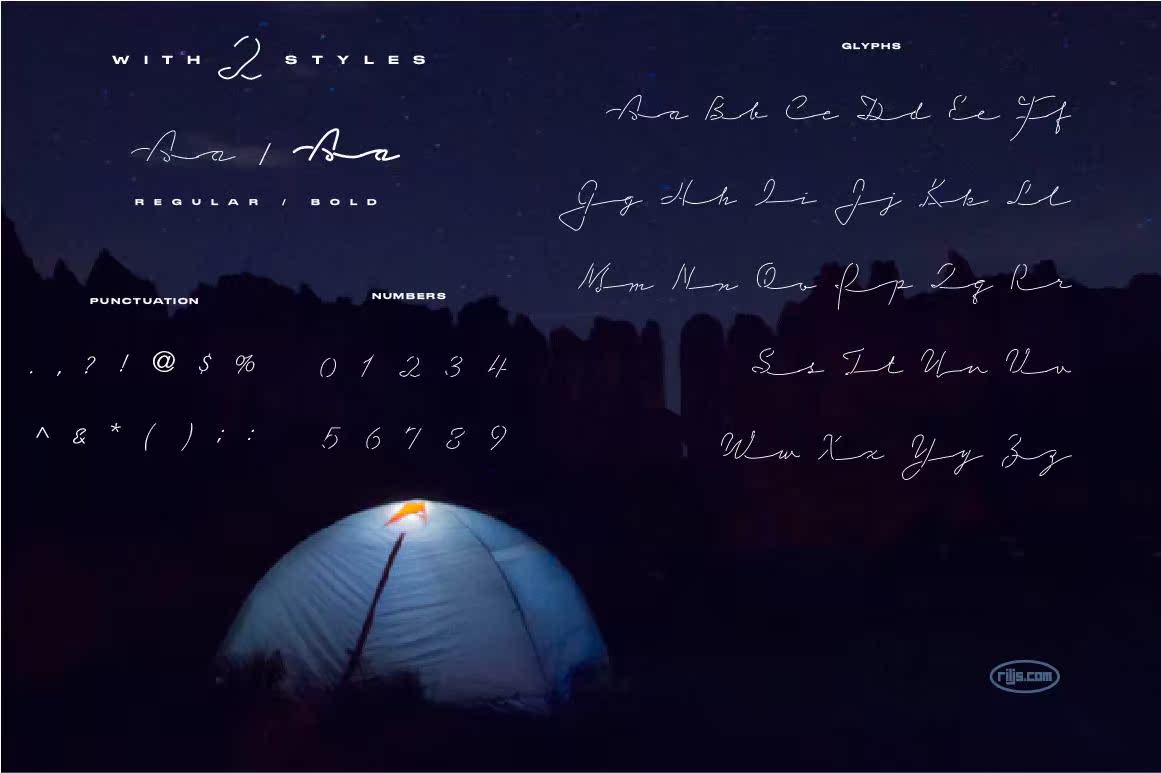 WITH 2 STYLES
Aa / Aa
REGULAR / BOLD
GLYPHS
Aa Bb Cc Dd Ee Ff
Gg Hh Ii Jj Kk Ll
Mm Nn Oo Pp Qq Rr
Ss Tt Uu Vv
Ww Xx Yy Zz
PUNCTUATION
. , ? ! @ $ %
^ & * ( ) ; :
NUMBERS
0 1 2 3 4
5 6 7 8 9
rijs.com